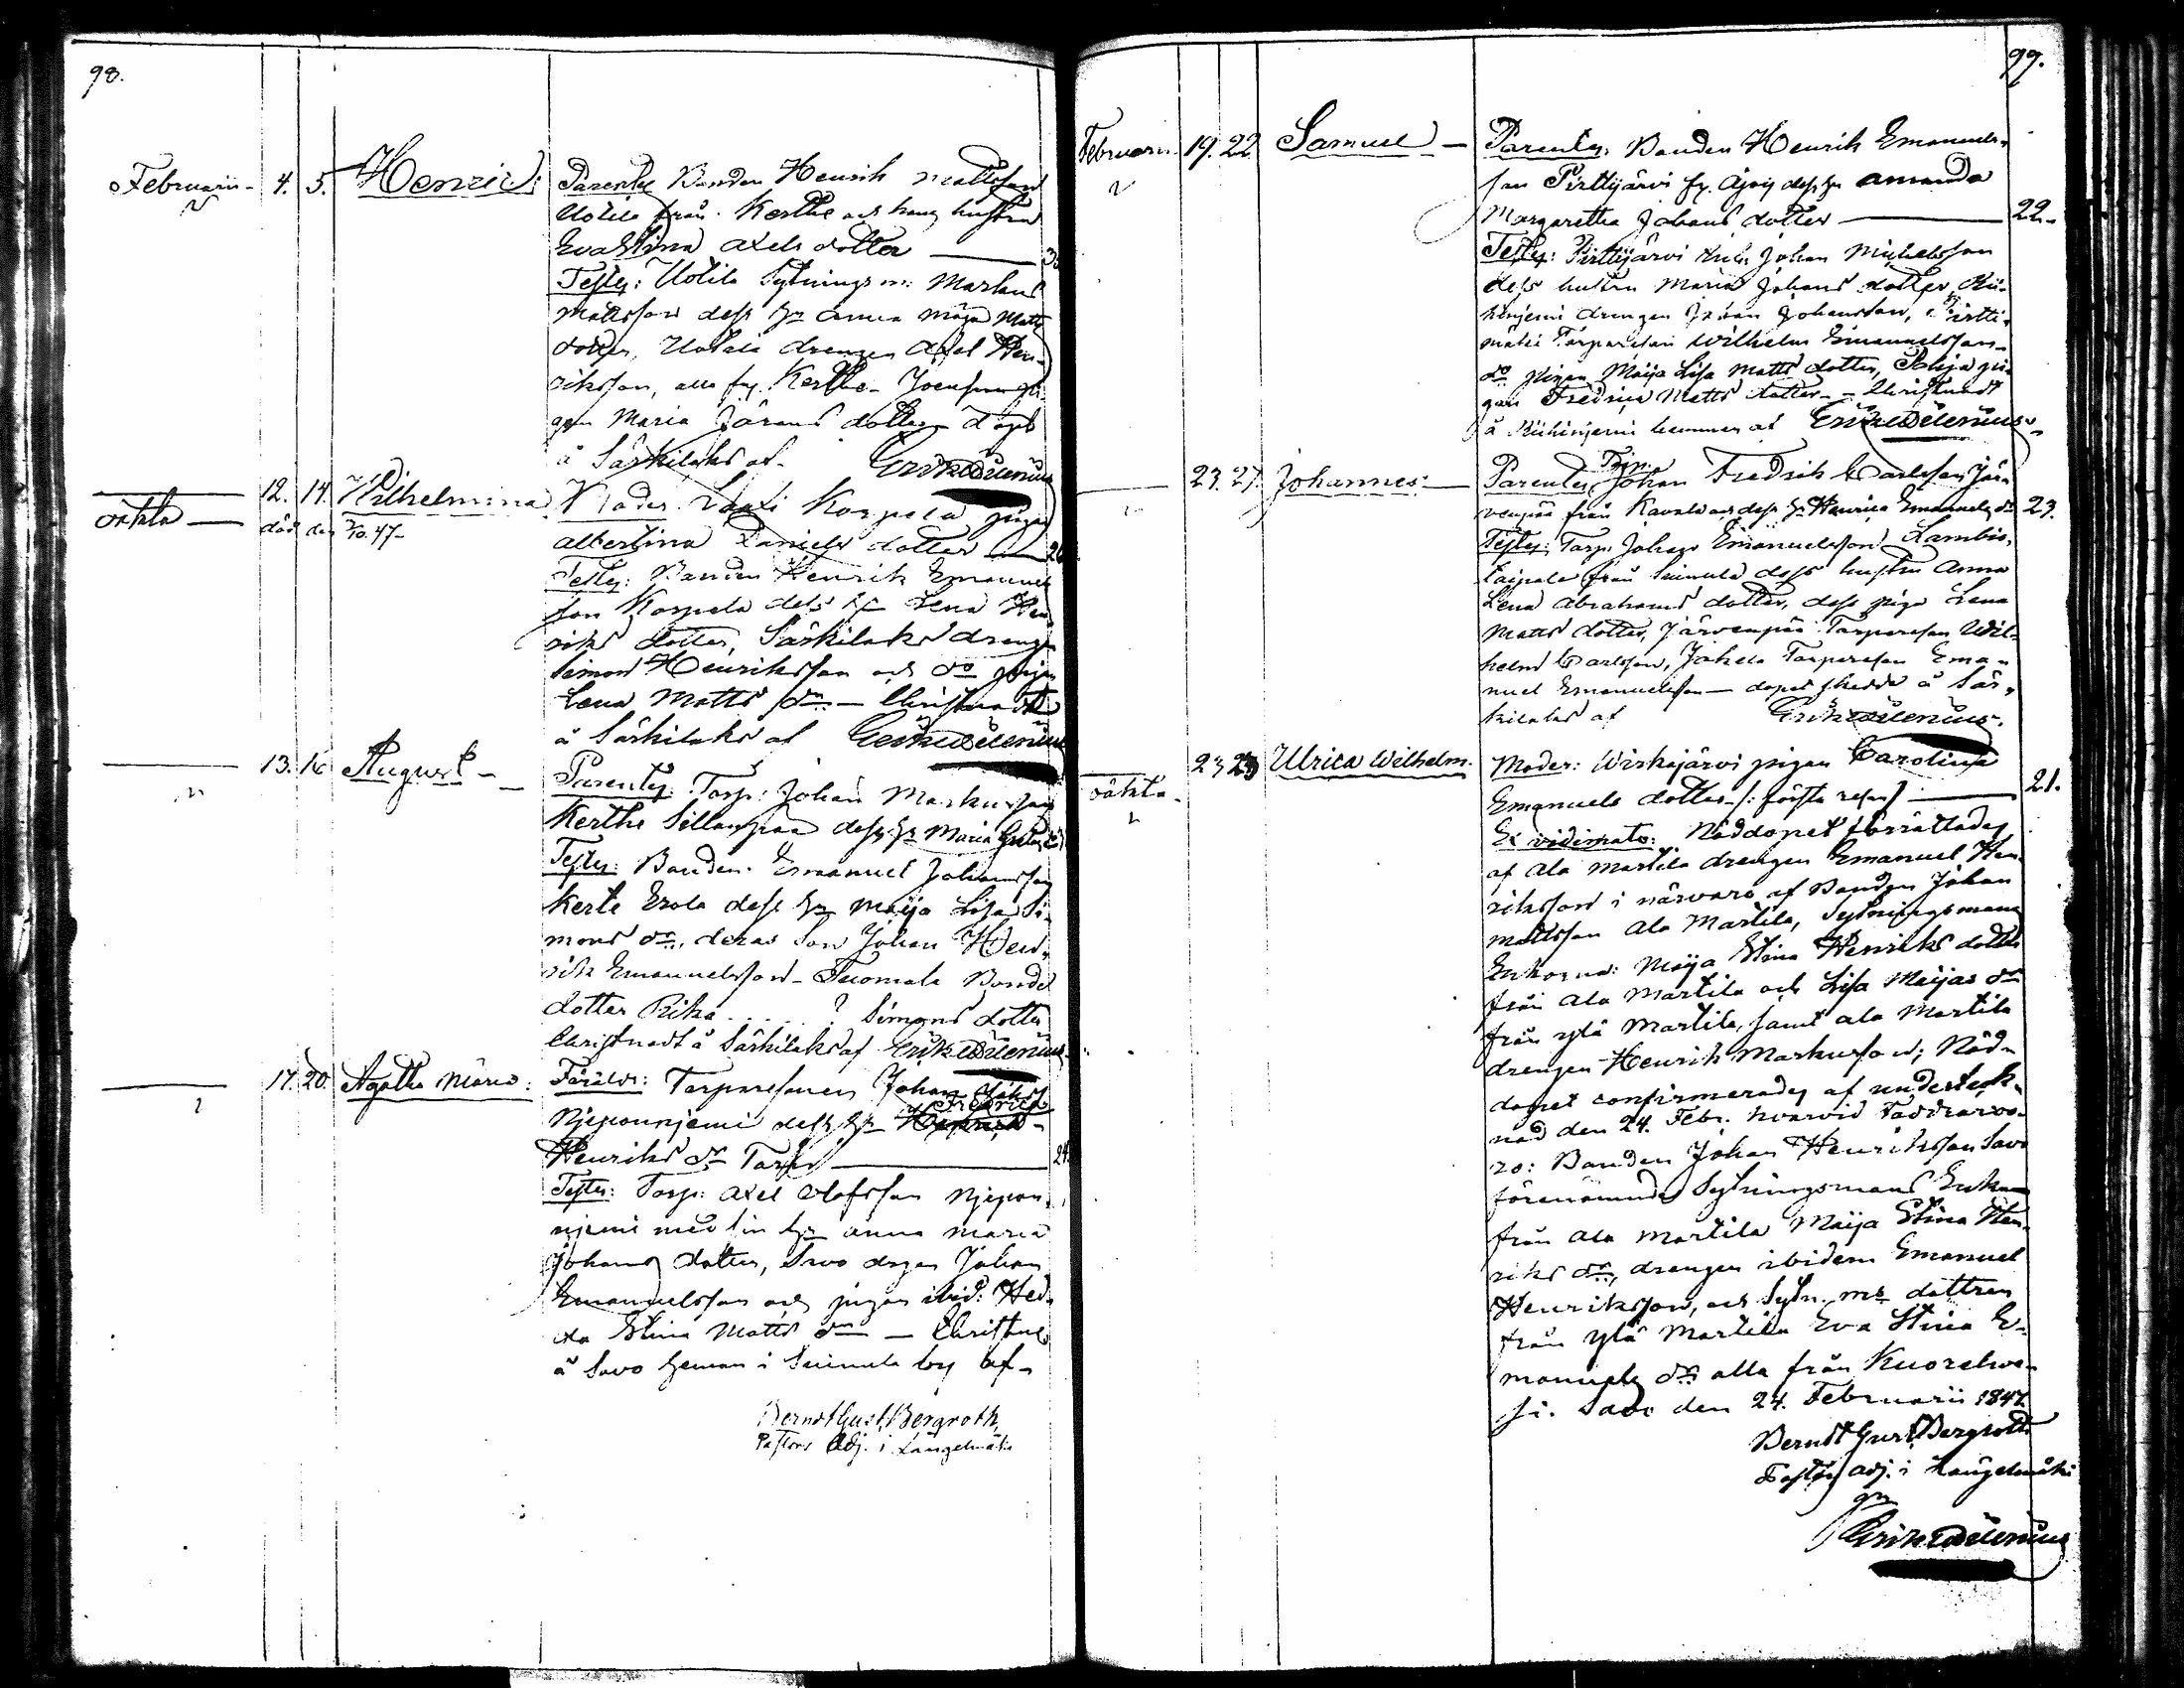 98.
Februarii 4. 5. Henric:
Parentes Bonden Henrik Mattsson
Uotila från Kerthe och hans hustru
Eva Stina Axels dotter
Testes: Uotila Sytnings m: Markus
Mattsson dess hu Anna Maja Matts
dotter, Uotila drengen Axel Hen-
riksson, alla fr. Kerthe
gan Maria Jörans dotter döpt
å Särkilaks af Erik Edelenius
oäkta 12. 14. Wilhelmina
död den 7/10. 47.
Moder: Korpela pigan
Albertina Daniels dotter
Testes: Bonden Henrik Emanuels
son Korpela dess hu Lena Hen-
riks dotter, Särkilaks drengen
Simon Henriksson och do pigan
Lena Matts dr. — Christnadt
å Särkilaks af Erik Edelenius
13. 16 August
Parentes: Torp: Johan Markusson
Kerthe Sillanpää dess hu Maria
Testes: Bonden Emanuel Johansson
Kerte Erola dess hu Maija Lisa Si-
mons dr., deras Son Johan Hen-
rik Emanuelsson - Tuomala Bonde
dotter Rika . . . . . ? Simons dotter
Christnadt å Särkilaks af Erik Edelenius
17. 20. Agatha Maria:
Föräldr: Torparesonen Johan Johss
Njeponnjemi dess hu Fredrica
Henriks dr
Testes: Torp: Axel Olofsson Njepon-
njemi med sin hu Anna Maria
Johans dotter, Savo drgen Johan
Emanuelsson och pigan ibid: Hed-
da Stina Matts dr — Christnad
å Savo heman i Suinula by af
Berndt Gust. Bergroth,
Pastors Adj. i Längelmäki
99.
Februarii 19. 22. Samuel —
Parentes: Bonden Henrik Emanuels-
son Pirttijärvi fr. dess hu Amanda
Margaretha Johans dotter — 22.
Testes: Pirttijärvi Johan Michelsson
dess hustru Maria Johans dotter,
drengen Johan Johansson, Pirtti-
mäki Torparesonen Wilhelm Emanuelsson
do pigan Maija Lisa Matts dotter, pi-
gan Fredrica Matts dotter — Christnadt
å hemman af Erik Edelenius
23. 27. Johannes: —
Parentes, Johan Fredrik Carlsson Jär-
venpää från Kavala och dess hu Henrica Emanuels dr 23.
Testes: Torp. Johan Emanuelsson
från Suinula dess hustru Anna
Lena Abrahams dotter, dess piga Lena
Matts dotter, Järvenpää Torparesonen Wil-
helm Carlsson, Torparesonen Ema-
nuel Emanuelsson — dopet skedde å Sär-
kilaks af Erik Edelenius.
oäkta 23 23 Ulrica Wilhelm.
Moder: Wirkajärvi pigan Carolina
Emanuels dotter /: första resan :/ — 21.
Ex vidimato: Nöddopet förrättades
af Ala Martila drengen Emanuel Hen-
riksson i närvaro af Bonden Johan
Mattsson Ala Martila, Sytningsmans
Enkorna: Maija Stina Henriks dotter
från Ala Martila och Lisa Maijas dr
från Ylä Martila, samt Ala Martila
drengen Henrik Markusson; Nöd-
dopet confirmerades af underteck-
nad den 24. Febr. hvarvid Faddrar vo-
ro: Bonden Johan Henriksson Savo
förenämnde Sytningsmans Enkan
från Ala Martila Maija Stina Hen-
riks dr, drengen ibidem Emanuel
Henriksson, och Sytn. ms dottren
från Ylä Martila Eva Stina E-
manuels dr alla från Kuorehve-
si. Savo den 24. Februarii 1847.
Berndt Gust. Bergroth
Pastors adj. i Längelmäki
gm
Erik Edelenius